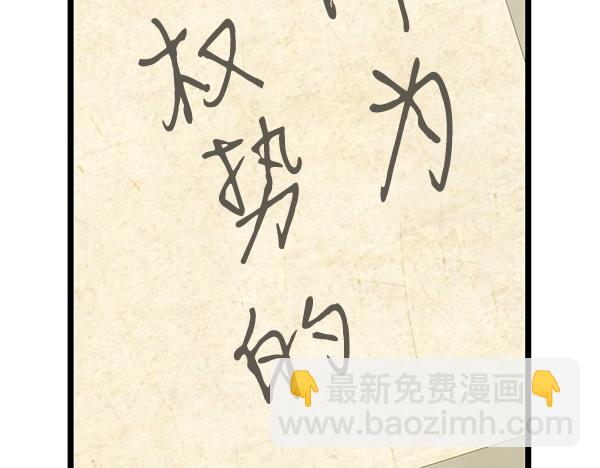 为
权势的
👇最新免费漫画👇
www.baozimh.com